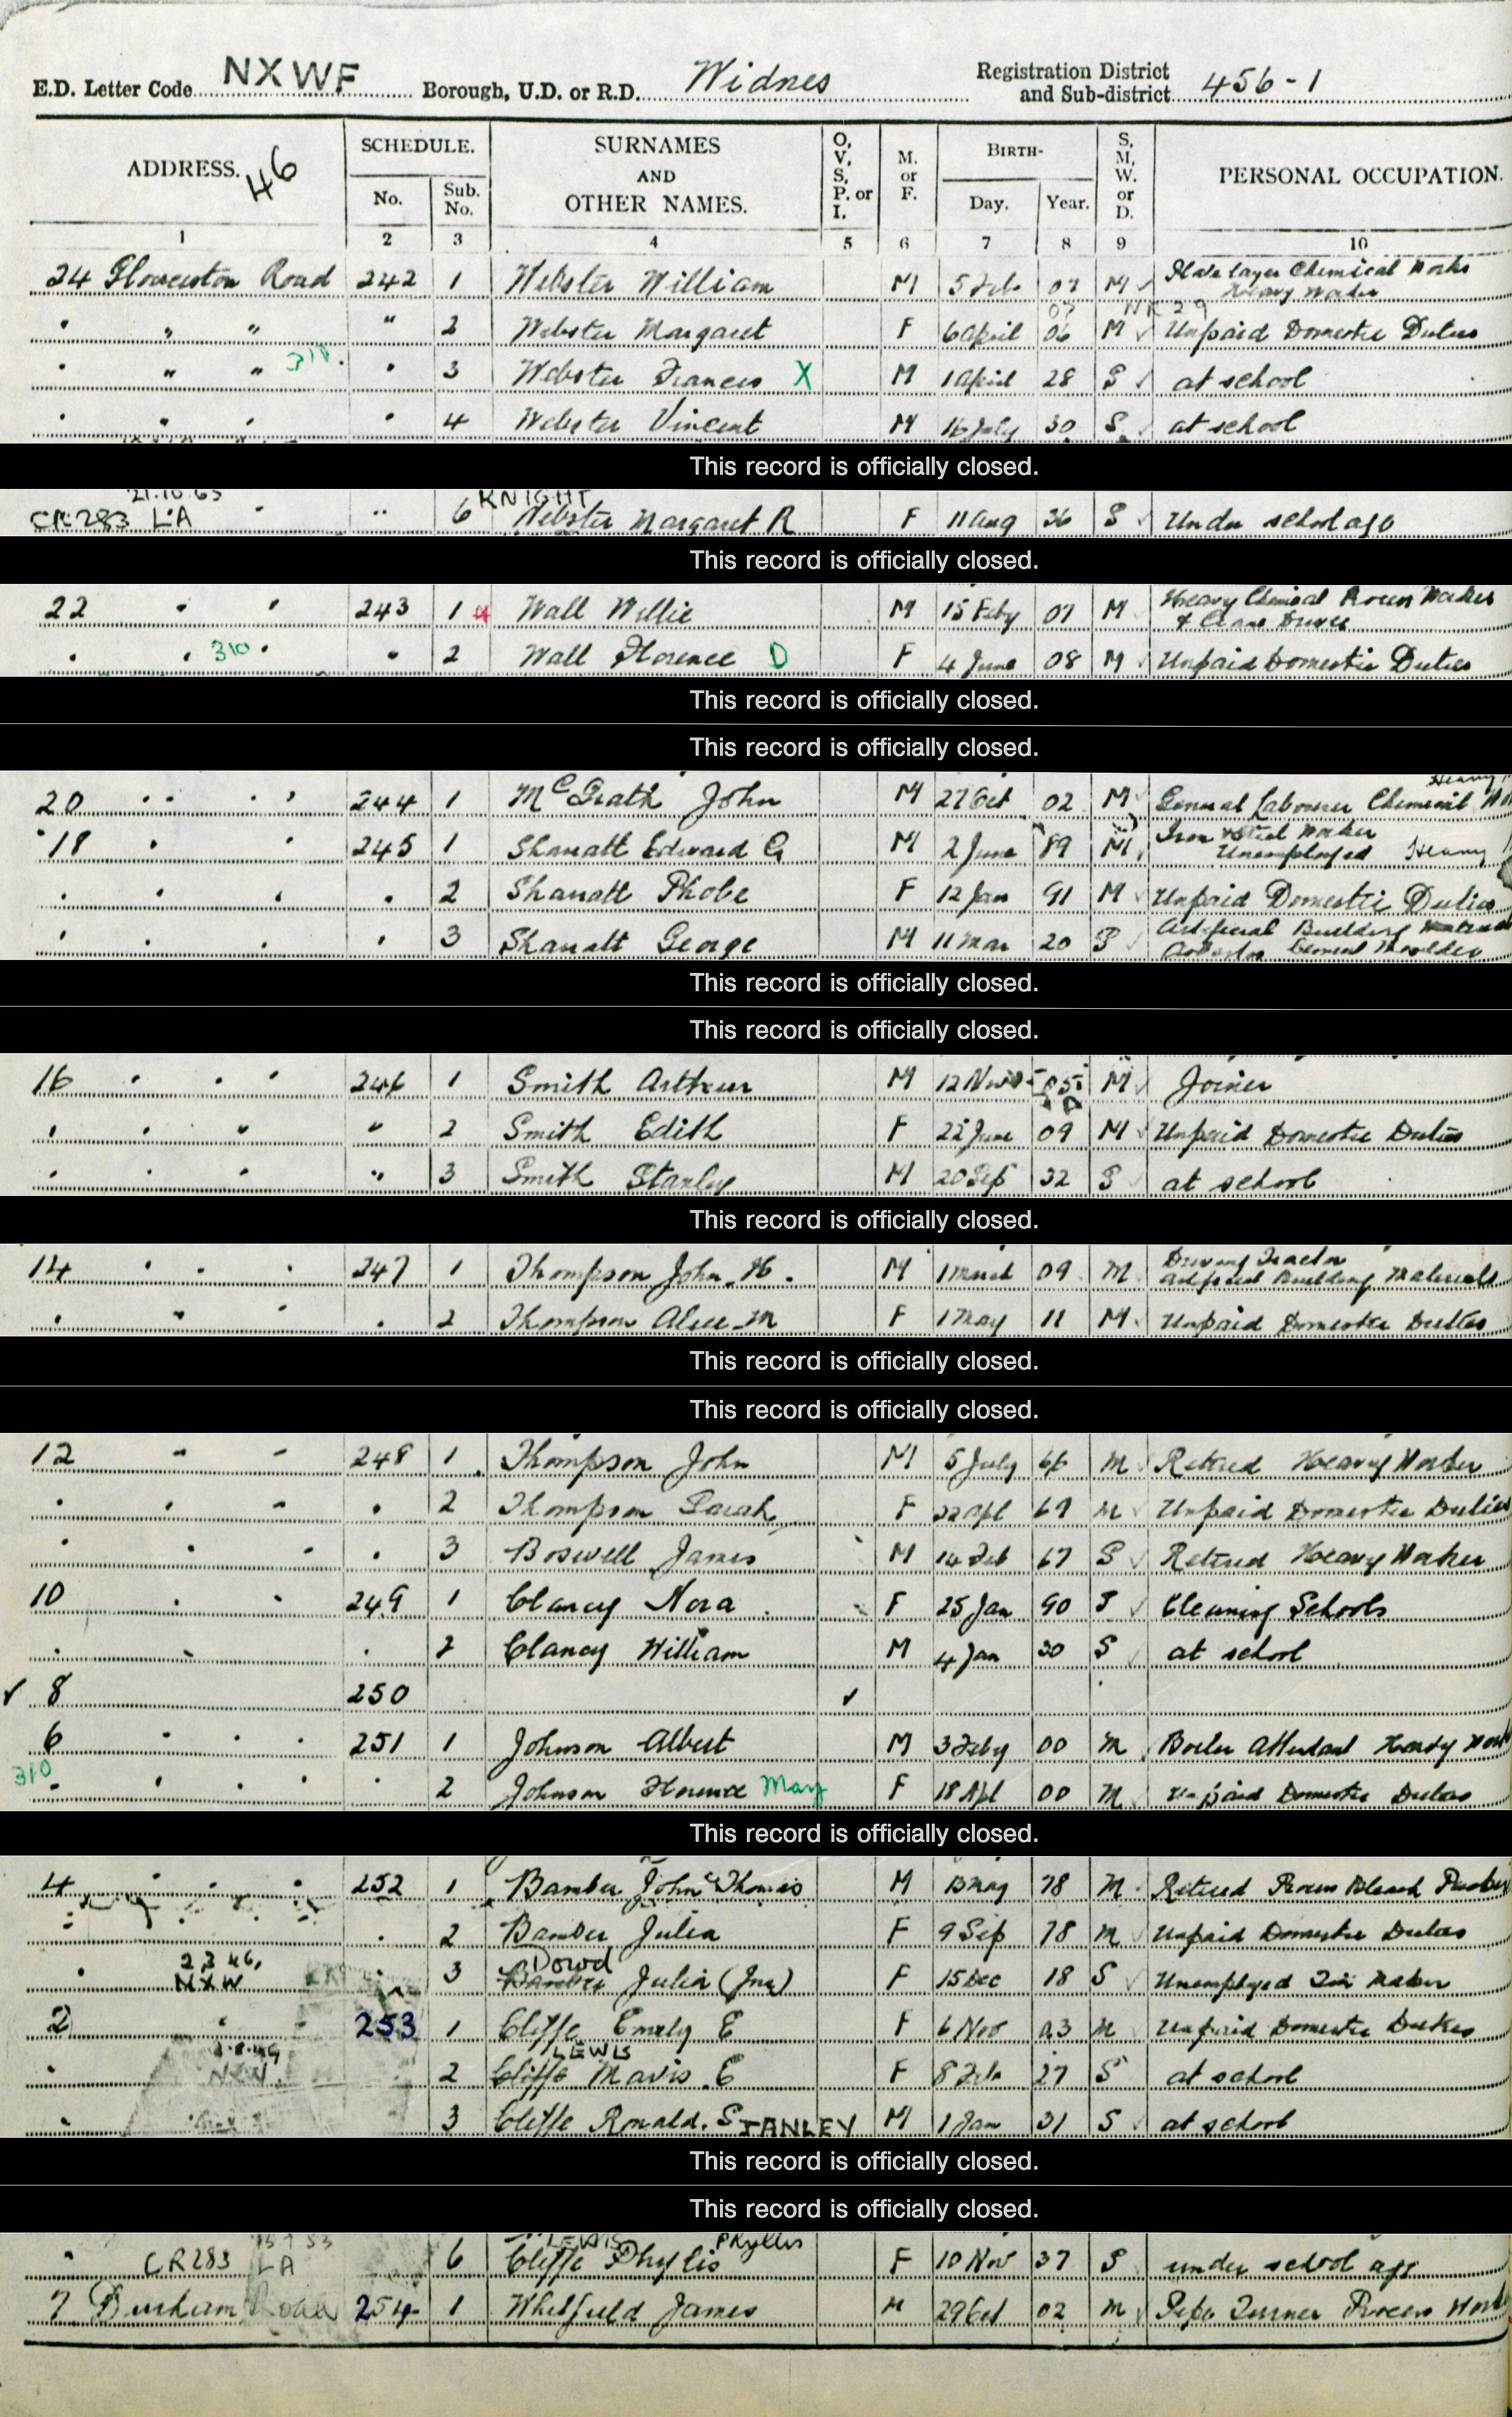 E.D. Letter Code NXWF Borough, U.D. or R.D. Widnes Registration District and Sub-district 456-1
ADDRESS. 46 SCHEDULE. No. Sub. No. SURNAMES AND OTHER NAMES. O, V, S, P. or I. M. or F. BIRTH- Day. Year. S, M, W. or D. PERSONAL OCCUPATION.
1 2 3 4 5 6 7 8 9 10
24 Road 242 1 Webster William M 5 Feb 07 M Plate layer Chemical Works Heavy Worker
07 NR 29
" " " 2 Webster Margaret F 6 April 06 M Unpaid Domestic Duties
" " 310 " 3 Webster Francis X M 1 April 28 S at school
" " " 4 Webster Vincent M 16 July 30 S at school
This record is officially closed.
21.10.65 KNIGHT
CR283 LA " " 6 Webster Margaret R F 11 Aug 36 S Under school age
This record is officially closed.
22 " " 243 1 Wall Willie M 15 Feby 07 M Heavy Chemical Process Worker & Crane Driver
" " 310 " 2 Wall Florence D F 4 June 08 M Unpaid Domestic Duties
This record is officially closed.
This record is officially closed.
20 " " 244 1 McGrath John M 27 Oct 02 M General Labourer Chemical Heavy
18 " " 245 1 Sharratt Edward G M 2 June 89 M Iron & Steel Worker Unemployed Heavy
" " " 2 Sharratt Phobe F 12 Jan 91 M Unpaid Domestic Duties
" " " 3 Sharratt George M 11 Mar 20 S Artificial Building Materials Asbestos Cement Moulder
This record is officially closed.
This record is officially closed.
16 " " 246 1 Smith Arthur M 12 Nov 05 M Joiner
" " " 2 Smith Edith F 22 June 09 M Unpaid Domestic Duties
" " " 3 Smith Stanley M 20 Sep 32 S at school
This record is officially closed.
14 " " 247 1 Thompson John H. M 1 March 09 M Driving Tractor Artificial Building Materials
" " " 2 Thompson Alice M F 1 May 11 M Unpaid Domestic Duties
This record is officially closed.
This record is officially closed.
12 " " 248 1 Thompson John M 5 July 66 M Retired Heavy Worker
" " " 2 Thompson Sarah F 22 Apl 69 M Unpaid Domestic Duties
" " " 3 Boswell James M 14 Feb 67 S Retired Heavy Worker
10 " " 249 1 Clancy Nora F 25 Jan 90 S Cleaning Schools
" " " 2 Clancy William M 4 Jan 30 S at school
✓ 8 250 ✓
6 " " 251 1 Johnson Albert M 3 Feby 00 M Boiler Attendant Heavy Work
310 " " " 2 Johnson Florence May F 18 Apl 00 M Unpaid Domestic Duties
This record is officially closed.
4 " " 252 1 Bamber John Thomas M 13 May 78 M Retired Process Bleach Packer
" " 2 Bamber Julia F 9 Sep 78 M Unpaid Domestic Duties
2 3 46, NXW Dowd
" " 3 Bamber Julia (Jnr) F 15 Dec 18 S Unemployed Tin Maker
2 " 253 1 Cliffe Emily E F 6 Nov 03 M Unpaid Domestic Duties
NXW LEWIS
" 2 Cliffe Mavis E F 8 Feb 27 S at school
" 3 Cliffe Ronald. STANLEY M 1 Jan 31 S at school
This record is officially closed.
This record is officially closed.
LEWIS Phyllis
" CR283 LA 6 Cliffe Phyllis F 10 Nov 37 S under school age
7 Durham Road 254 1 Whitfield James M 29 Oct 02 M Pipe Turner Process Work